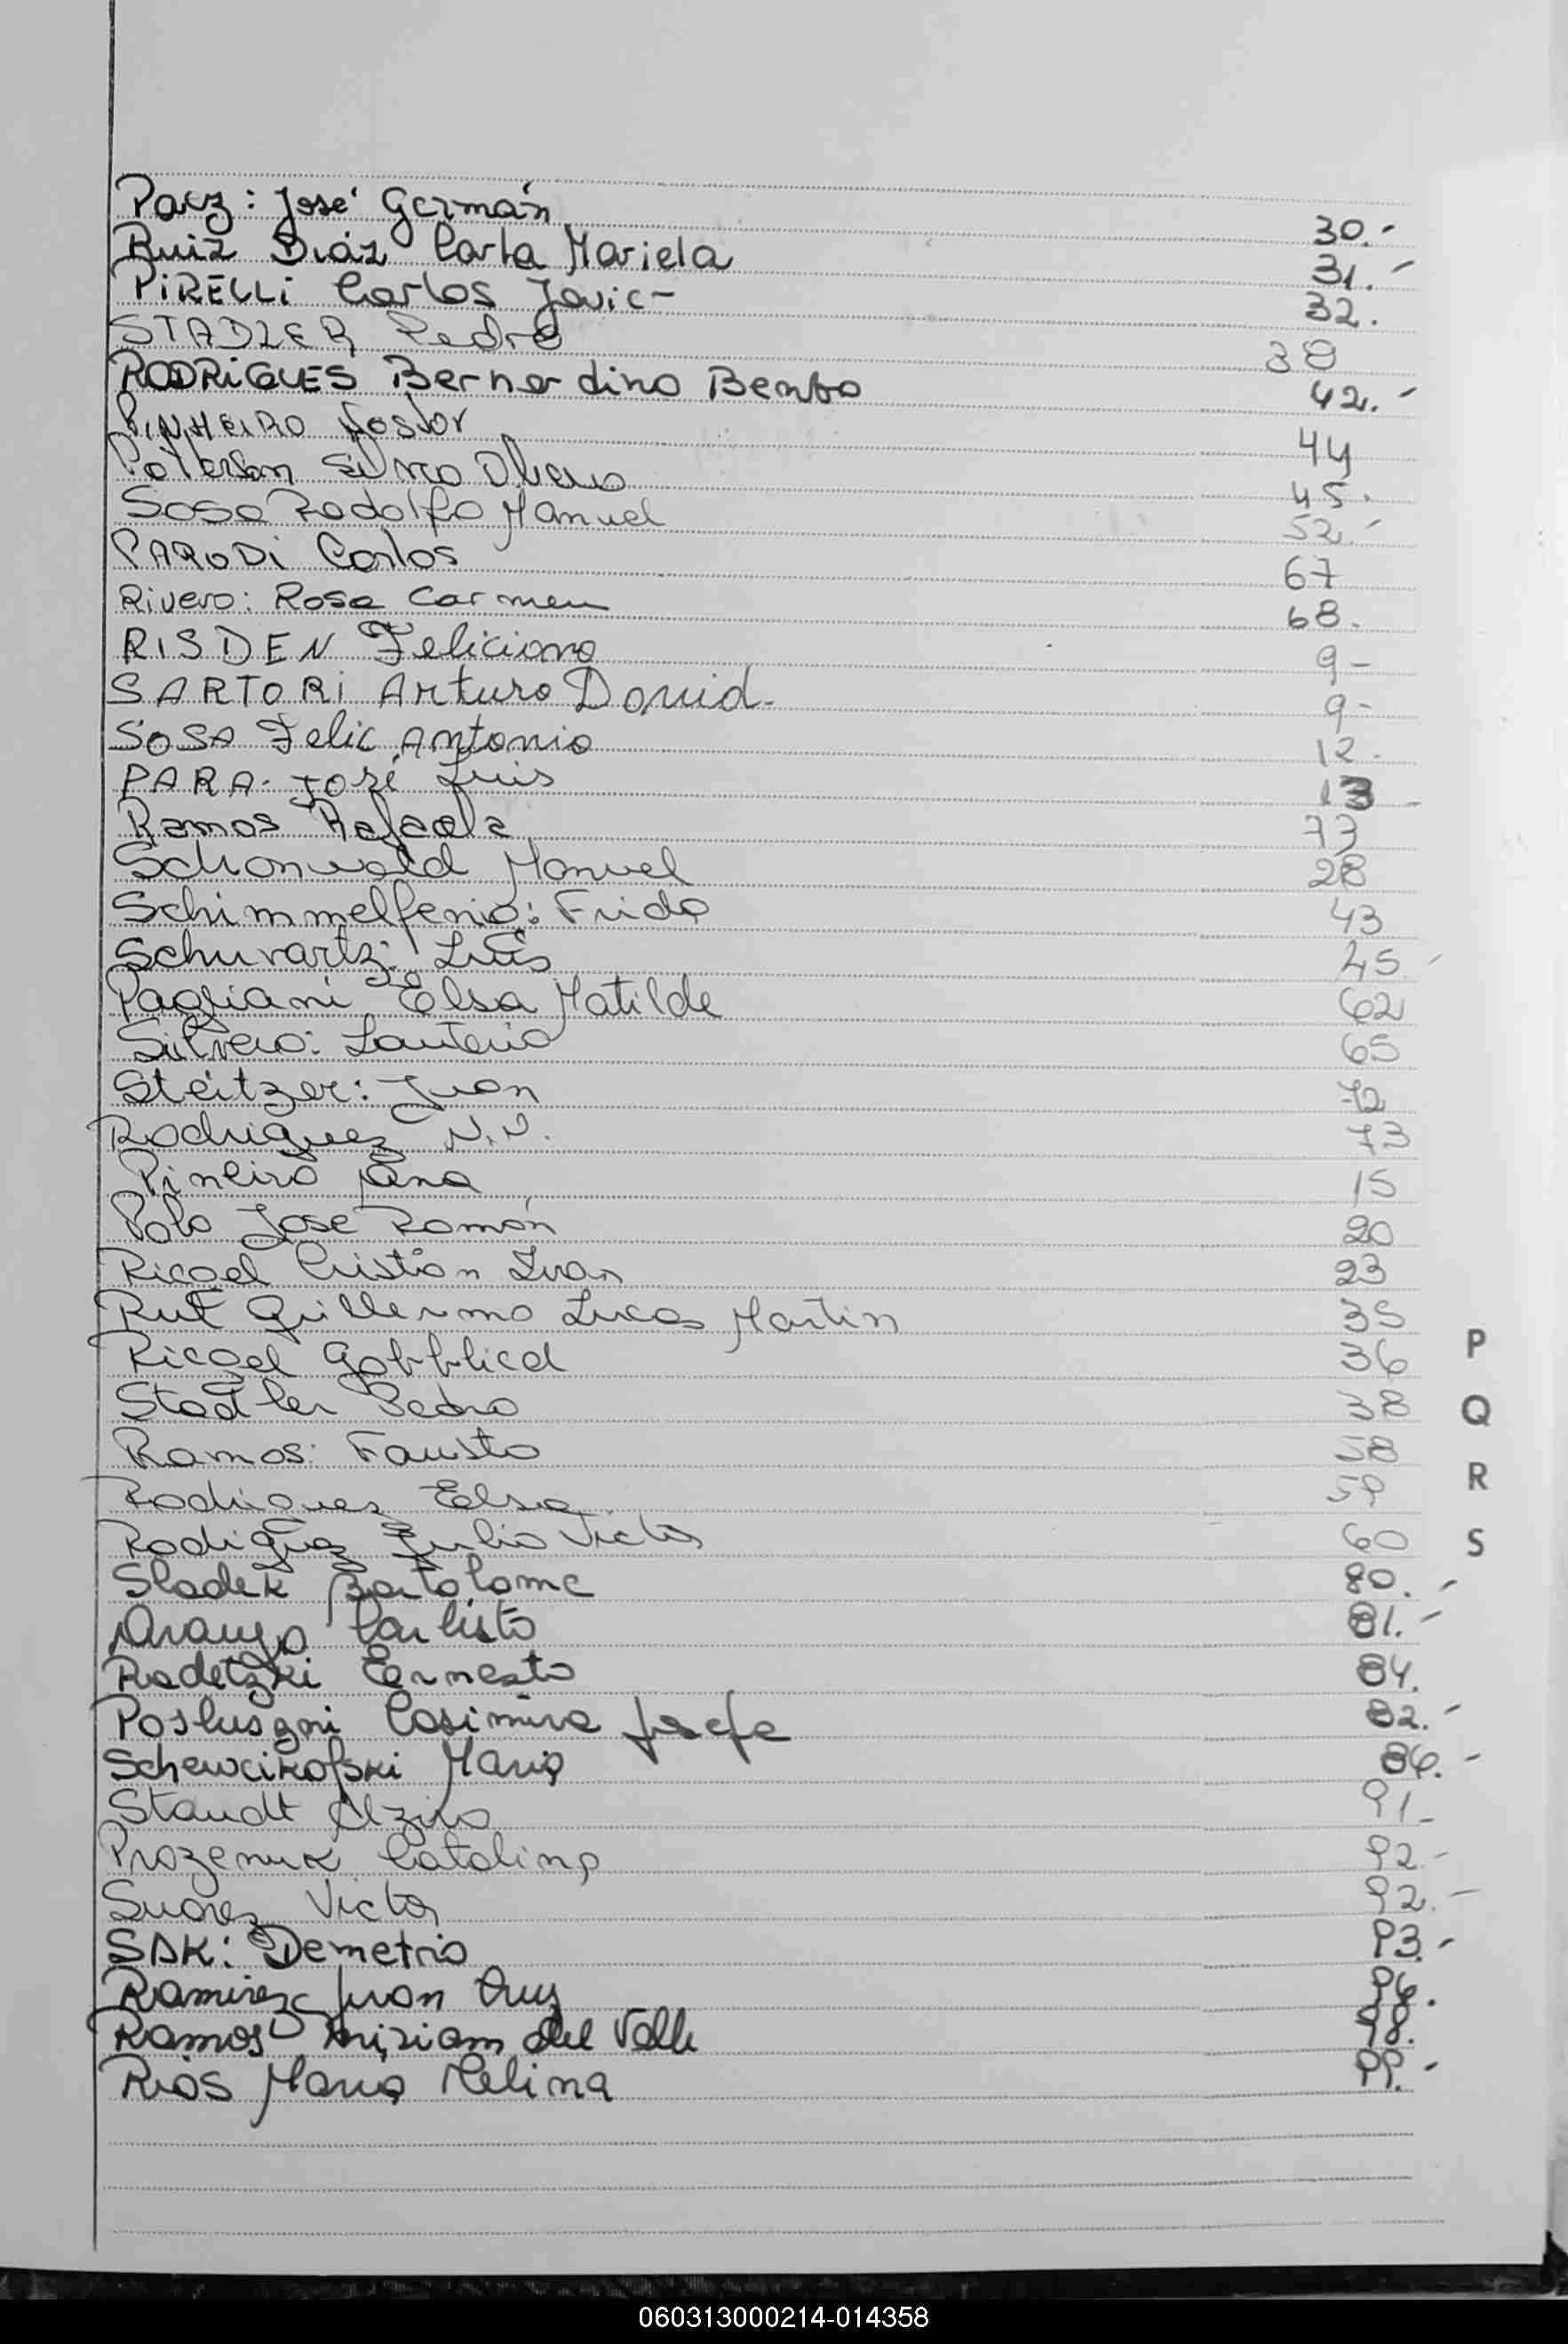 Paez: José Germán 30.-
Ruiz Diáz Carla Mariela 31.-
PiRELLi Carlos Javie- 32.
STADLER Pedro 38
RODRiGUES Bernardino Bento 42.-
PiNHEiRO Nestor 44
45.
Sosa Rodolfo Manuel 52.-
PARODi Carlos 67
Rivero: Rosa Carmen 68.
RISDEN Feliciano 9-
SARTORi Arturo David- 9-
SOSA Felic Antonio 12.
PARA- José Luis 13
Ramos Rafaela 73
Schonwald Manuel 28
Schimmelfenig: Frida 43
Schuvartz: Luis 45
Pagliani Elsa Matilde 62
Silvero: 65
Steitzer: Juan 72
Rodriguez N.N. 73
Pineiro Ana 15
Polo Jose Román 20
Ricgel Cristian Ivan 23
Rut Guillermo Lucas Martin 35
Ricgel 36
Stadler Pedro 38
Ramos: Fausto 58
Rodriguez Elsa 59
Rodiguez Julio Victor 60
P
Q
R
S
Sladek Bartolome 80.-
Araujo 81.-
Radetzki Ernesto 84.
Poslusgni Casimira 82.-
Schewcikofski Maria 86.-
Staudt Alzira 91-
Prozenuk Catalina 92-
Suarez Victor 92.-
SAK: Demetrio 93.-
Ramirez Juan Cruz 96.
Ramos Miriam del Valle 98.
Rios Maria Melina 99.-
060313000214-014358